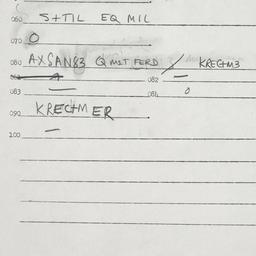 060 S+TIL EQ MIL
070 O
080 AXSAN83 Q MIT FERD / KRECTM3
082 —
083 — 084 0
090 KRECTMER
100 —